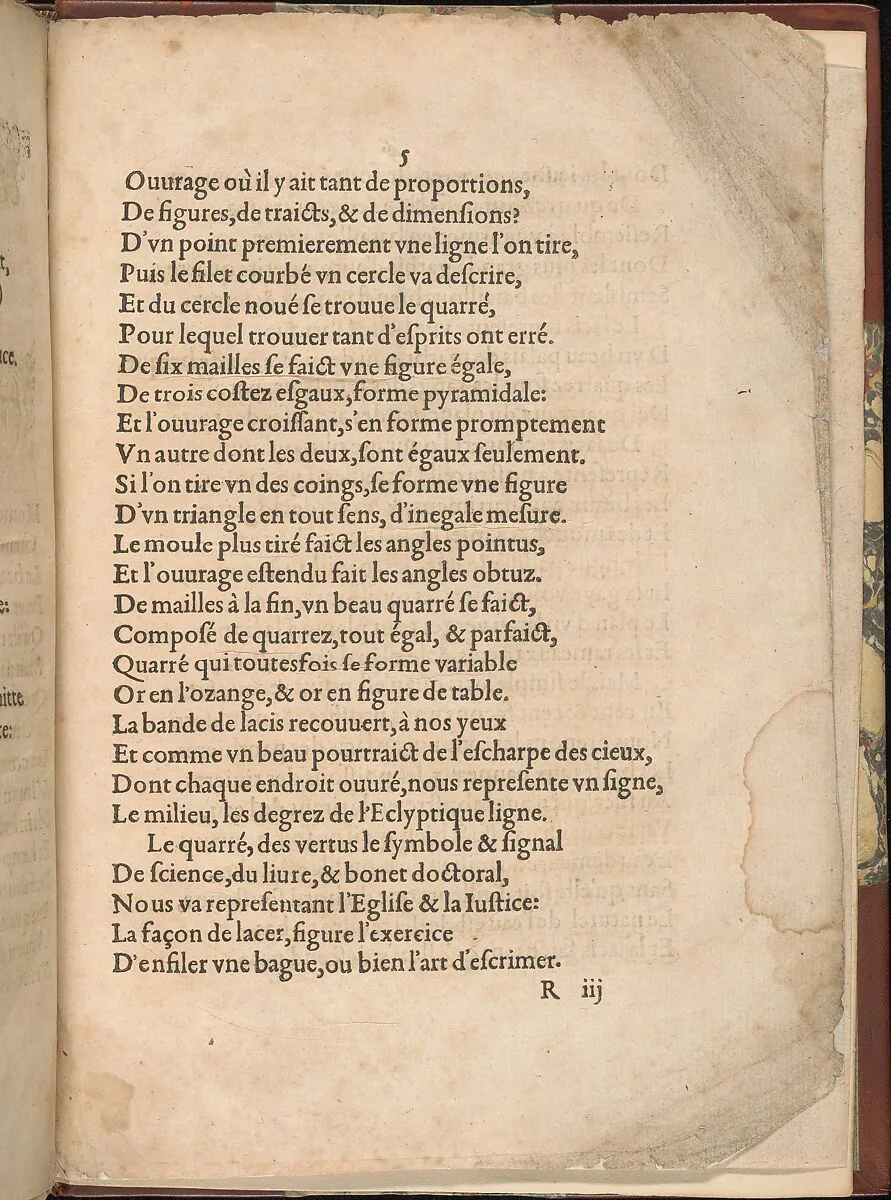 5
Ouurage où il y ait tant de proportions,
De figures, de traicts, & de dimenſions?
D'vn point premierement vne ligne l'on tire,
Puis le filet courbé vn cercle va deſcrire,
Et du cercle noué ſe trouue le quarré,
Pour lequel trouuer tant d'eſprits ont erré.
De ſix mailles ſe faict vne figure égale,
De trois coſtez eſgaux, forme pyramidale:
Et l'ouurage croiſſant, s'en forme promptement
Vn autre dont les deux, ſont égaux ſeulement.
Si l'on tire vn des coings, ſe forme vne figure
D'vn triangle en tout ſens, d'inegale meſure.
Le moule plus tiré faict les angles pointus,
Et l'ouurage eſtendu fait les angles obtuz.
De mailles à la fin, vn beau quarré ſe faict,
Compoſé de quarrez, tout égal, & parfaict,
Quarré qui toutesfois ſe forme variable
Or en l'ozange, & or en figure de table.
La bande de lacis recouuert, à nos yeux
Et comme vn beau pourtraict de l'eſcharpe des cieux,
Dont chaque endroit ouuré, nous repreſente vn ſigne,
Le milieu, les degrez de l'Eclyptique ligne.
Le quarré, des vertus le ſymbole & ſignal
De ſcience, du liure, & bonet doctoral,
Nous va repreſentant l'Egliſe & la Iuſtice:
La façon de lacer, figure l'exercice
D'enfiler vne bague, ou bien l'art d'eſcrimer.
R iij
t,
)
ace.
e:
nitte
te: